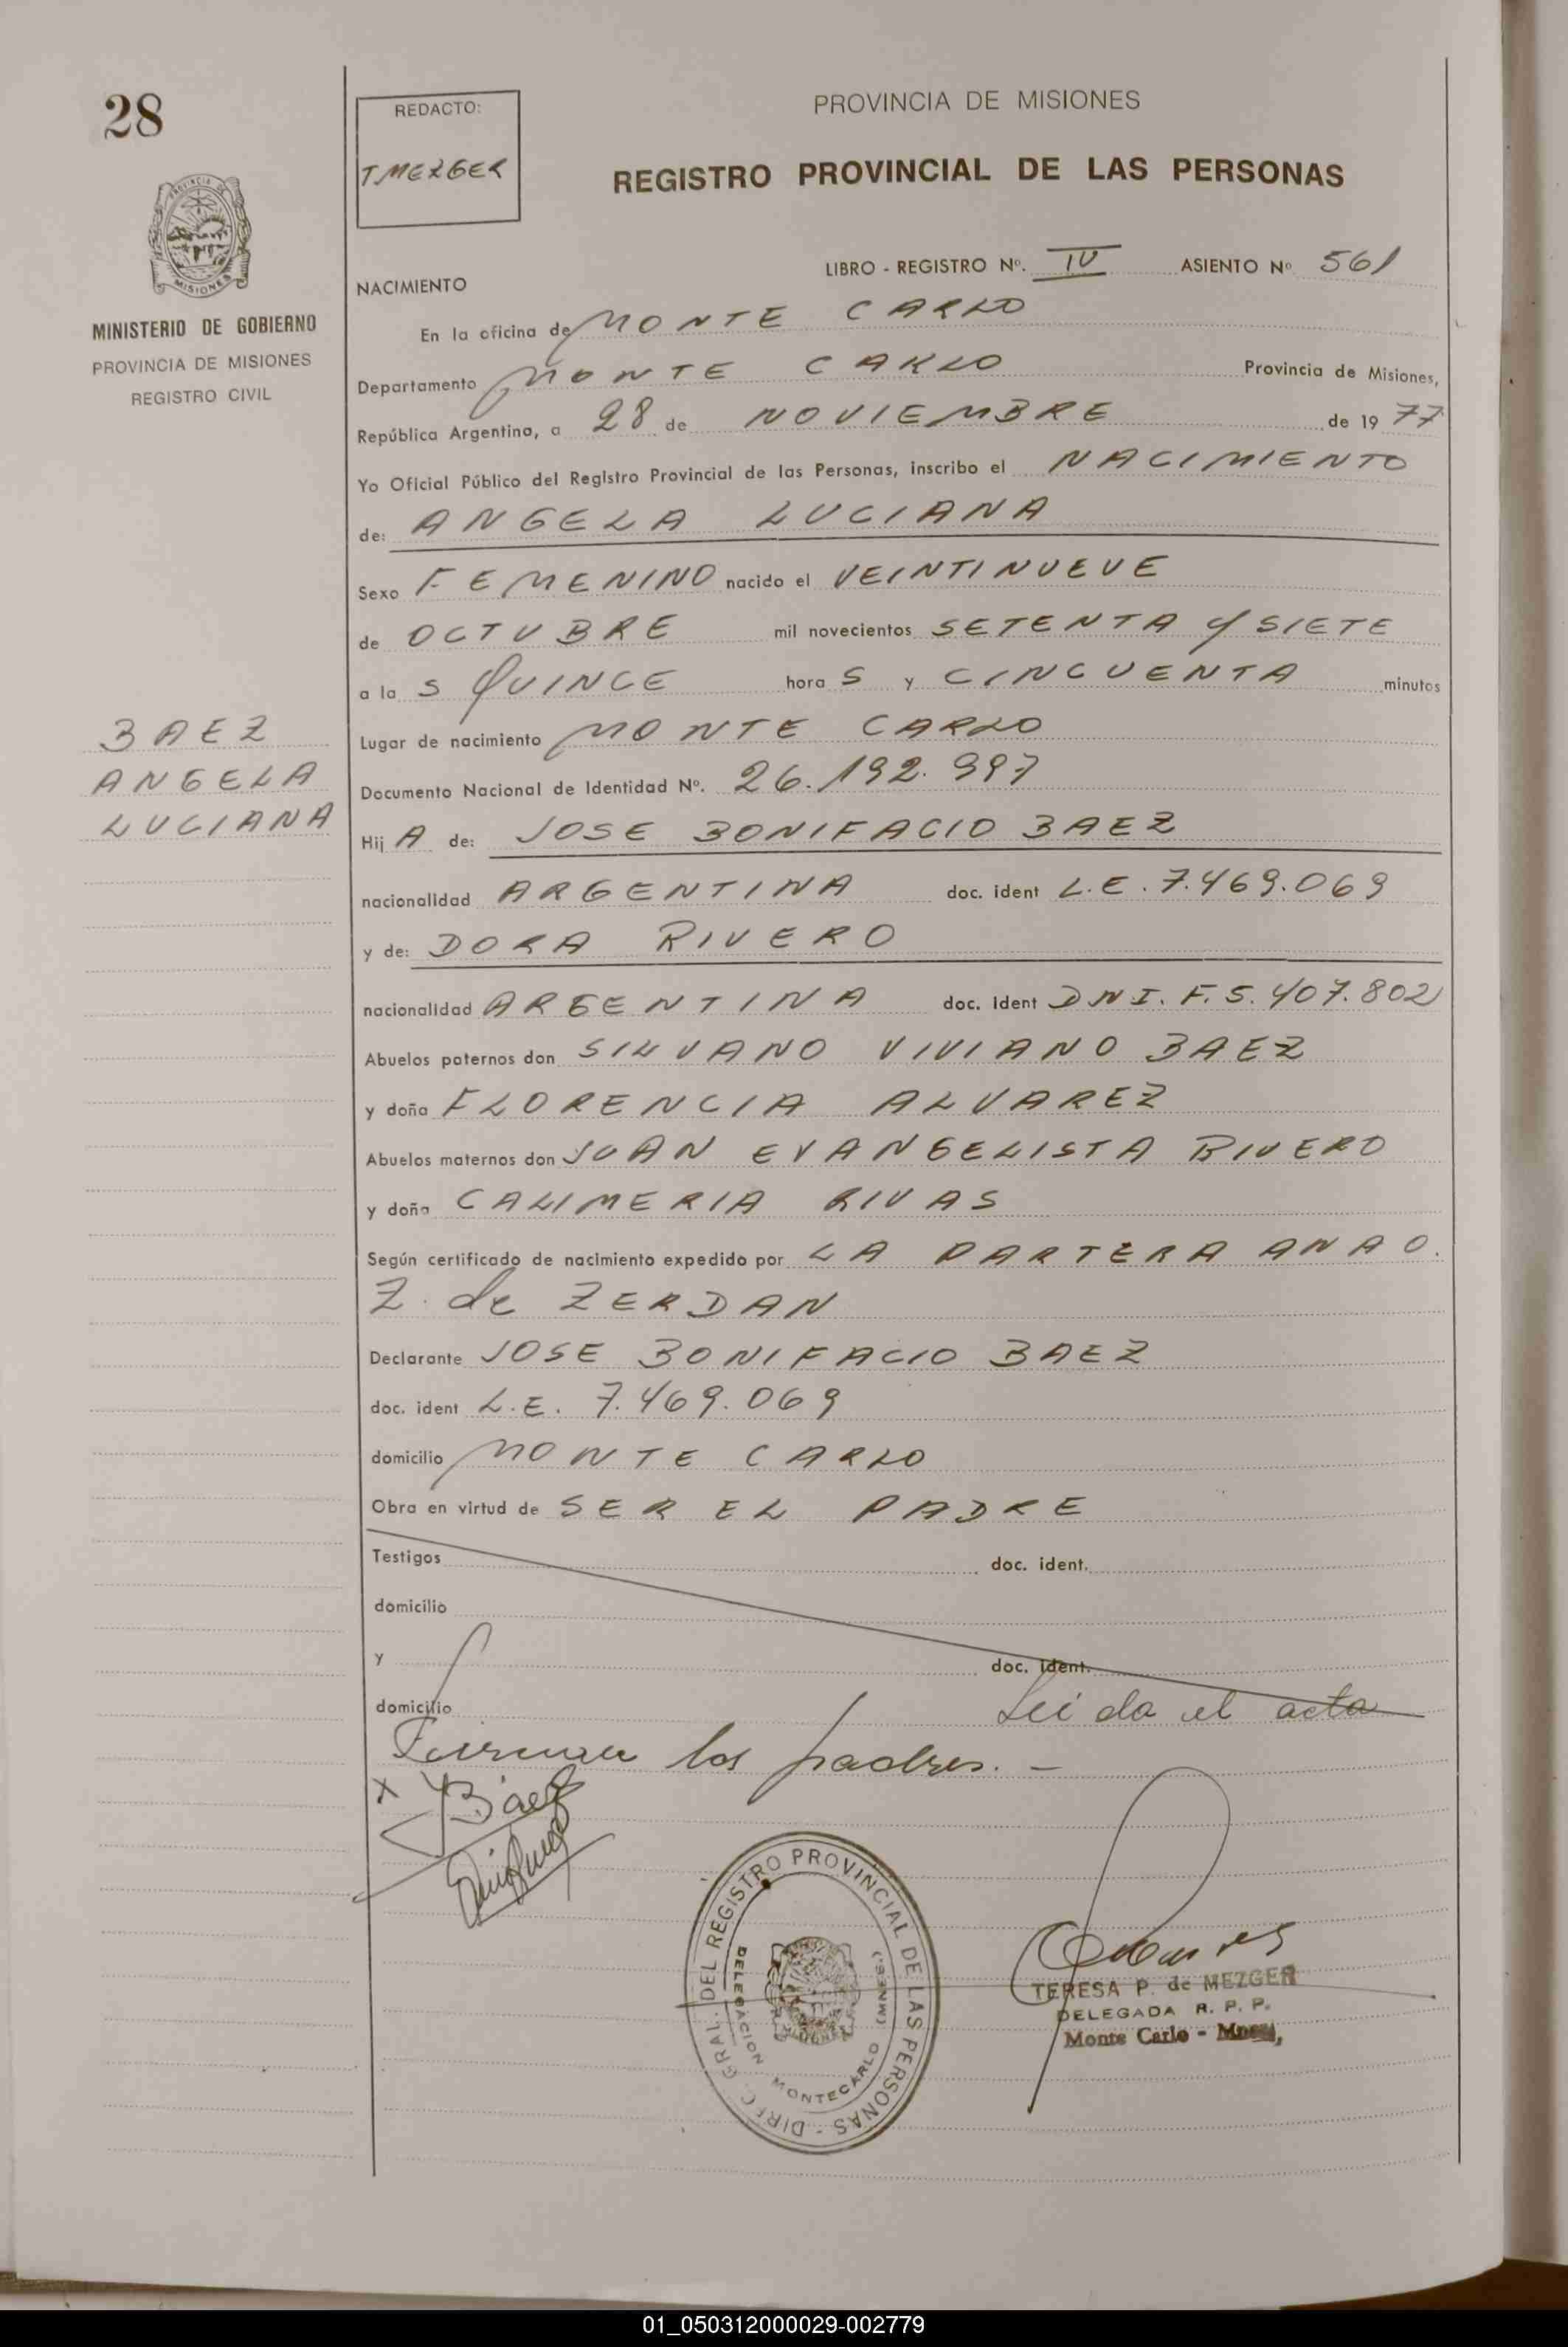 28
REDACTO:
T MEZGER
PROVINCIA DE MISIONES
REGISTRO PROVINCIAL DE LAS PERSONAS
MISIONES
MINISTERIO DE GOBIERNO
PROVINCIA DE MISIONES
REGISTRO CIVIL
LIBRO - REGISTRO Nº. IV ASIENTO Nº 561
NACIMIENTO
En la oficina de MONTE CARLO
Departamento MONTE CARLO Provincia de Misiones,
República Argentina, a 28 de NOVIEMBRE de 1977
Yo Oficial Público del Registro Provincial de las Personas, inscribo el NACIMIENTO
de: ANGELA LUCIANA
Sexo FEMENINO nacido el VEINTINUEVE
de OCTUBRE mil novecientos SETENTA Y SIETE
a la S QUINCE hora S y CINCUENTA minutos
BAEZ
ANGELA
LUCIANA
Lugar de nacimiento MONTE CARLO
Documento Nacional de Identidad Nº. 26.192.997
Hij A de: JOSE BONIFACIO BAEZ
nacionalidad ARGENTINA doc. ident L.E. 7.469.069
y de: DORA RIVERO
nacionalidad ARGENTINA doc. Ident DNI. F. 5.407.802
Abuelos paternos don SILVANO VIVIANO BAEZ
y doña FLORENCIA ALVAREZ
Abuelos maternos don JUAN EVANGELISTA RIVERO
y doña CALIMERIA RIVAS
Según certificado de nacimiento expedido por LA PARTERA ANA O.
Z. de ZERDAN
Declarante JOSE BONIFACIO BAEZ
doc. ident L.E. 7.469.069
domicilio MONTE CARLO
Obra en virtud de SER EL PADRE
Testigos doc. ident.
domicilio
y doc. ident.
domicilio Leida el acta
Firman los padres. -
X Baez
DIREC. GRAL. DEL REGISTRO PROVINCIAL DE LAS PERSONAS -
DELEGACION MONTECARLO (MNES.)
TERESA P. de MEZGER
DELEGADA R. P. P.
Monte Carlo - Mnes,
01_050312000029-002779